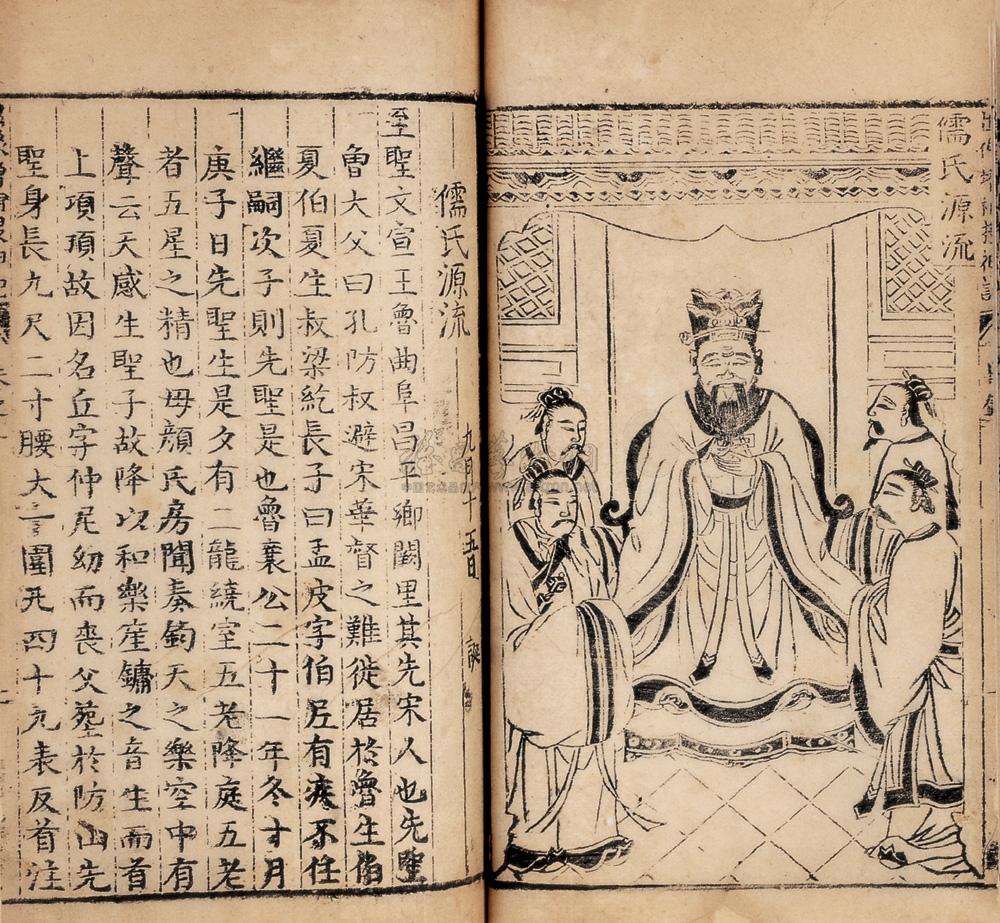 儒氏源流
儒氏源流
至聖文宣王魯曲阜昌平鄉闕里其先宋人也先聖
魯大父曰孔防叔避宋華督之難徙居於魯生伯
夏伯夏生叔梁紇長子曰孟皮字伯尼有疾不任
繼嗣次子則先聖是也魯襄公二十一年冬十月
庚子日先聖生是夕有二龍繞室五老降庭五老
者五星之精也母顏氏房聞奏鈞天之樂空中有
聲云天感生聖子故降以和樂笙鏞之音生而首
上項項故因名丘字仲尼幼而喪父塟於防山先
聖身長九尺二寸腰大圍凡四十九表反首洼